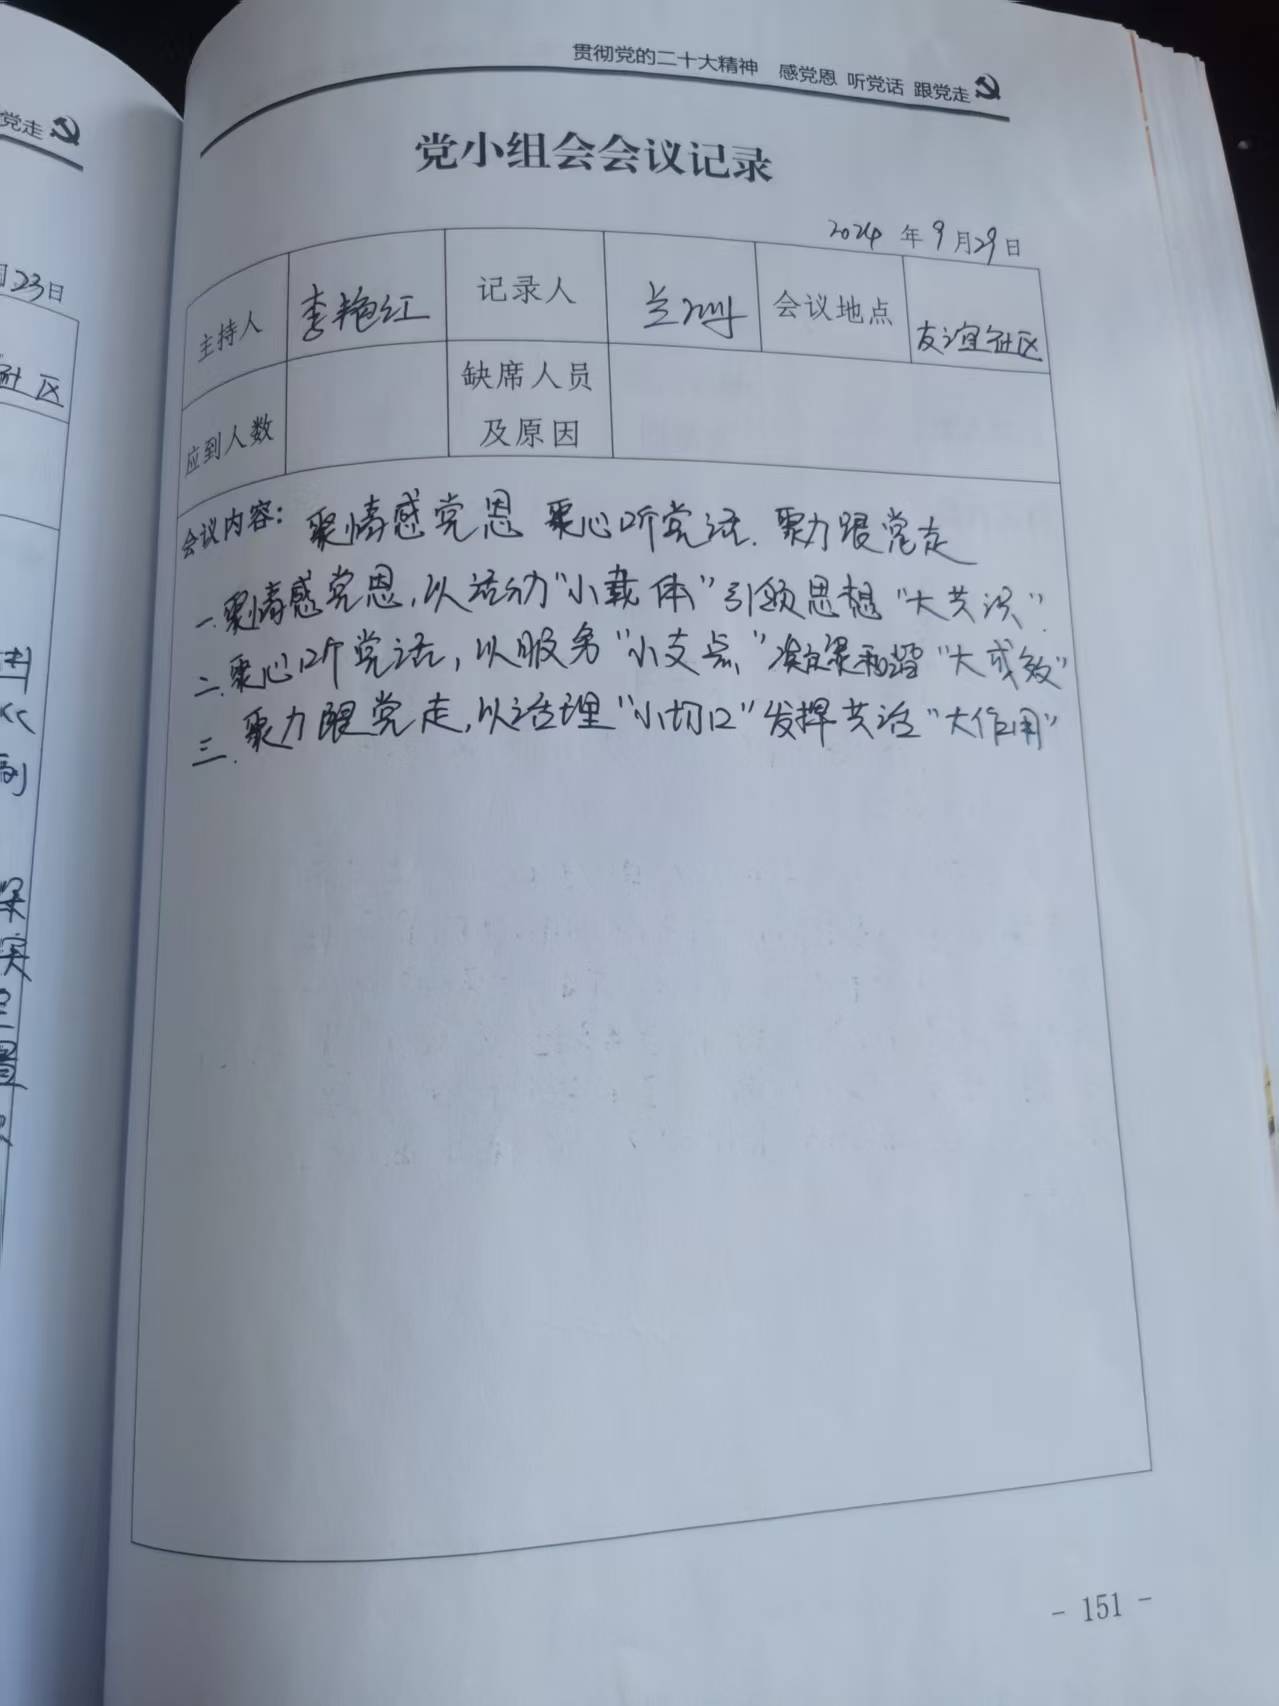 党走
月23日
社区
贯彻党的二十大精神 感党恩 听党话 跟党走
党小组会会议记录
2024 年 9 月 29 日
主持人 李艳红 记录人 会议地点 友谊社区
应到人数 缺席人员及原因
会议内容: 聚情感党恩 聚心听党话. 聚力跟党走
一.聚情感党恩,以活动"小载体"引领思想"大共识".
二.聚心听党话,以服务"小支点"凝聚和谐"大成效"
三.聚力跟党走,以治理"小切口"发挥共治"大作用"
- 151 -